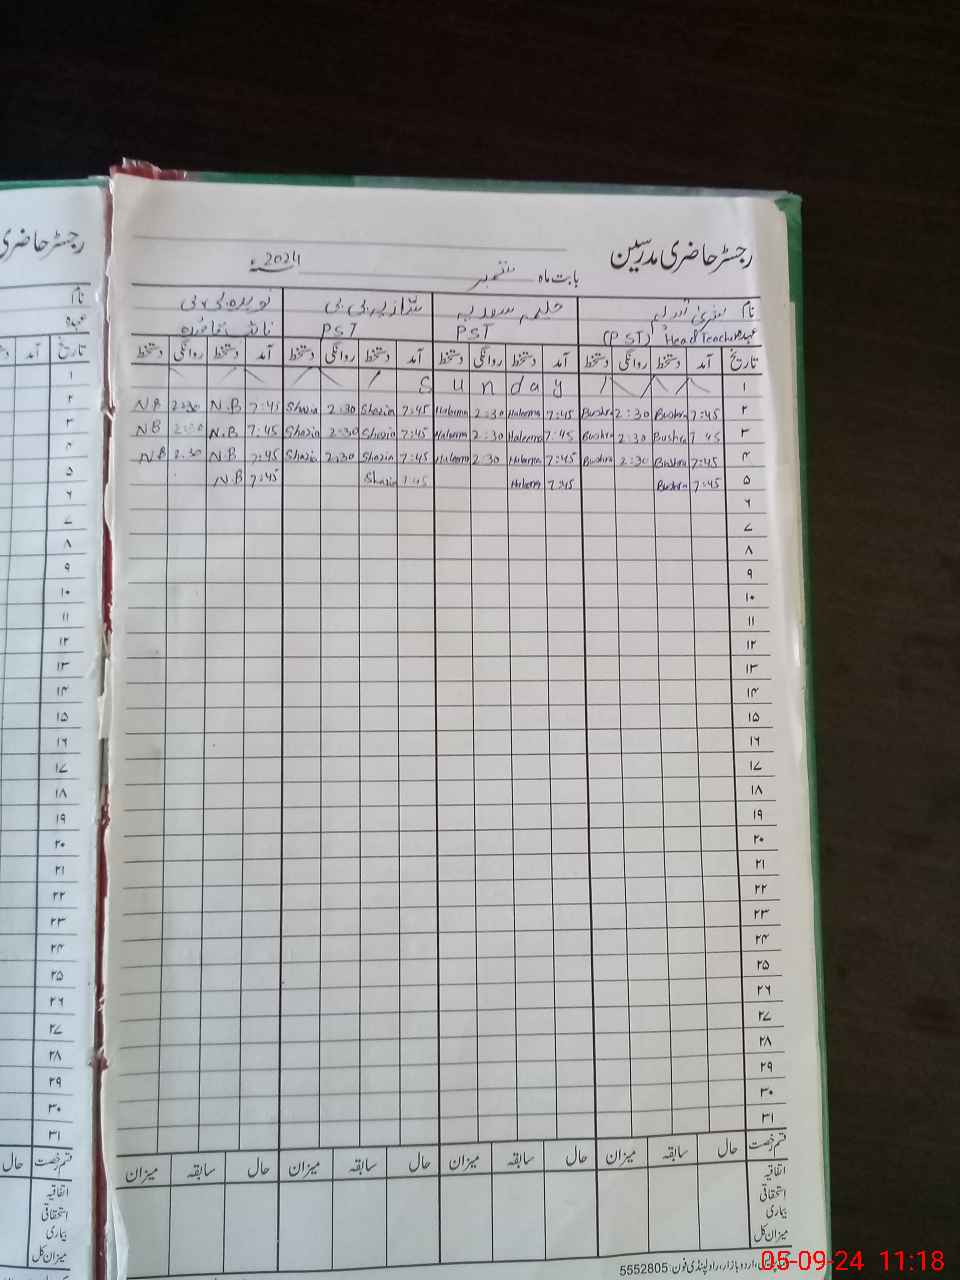 رجسٹر حاضری مدرسین
بابت ماہ ستمبر 2024ء
نام حلیمہ سعدیہ شازیہ بی بی نویرہ بی بی
عہدہ Head Teacher (PST) PST PST
تاریخ آمد دستخط روانگی دستخط آمد دستخط روانگی دستخط آمد دستخط روانگی دستخط آمد دستخط روانگی دستخط
۱ Sunday
۲ 7:45 Bushra 2:30 Bushra 7:45 Haleema 2:30 Haleema 7:45 Shazia 2:30 Shazia 7:45 N.B 2:30 N.B
۳ 7 45 Bushra 2:30 Bushra 7:45 Haleema 2:30 Haleema 7:45 Shazia 2:30 Shazia 7:45 N.B 2:30 N B
۴ 7:45 Bushra 2:30 Bushra 7:45 Haleema 2 30 Haleema 7:45 Shazia 2:30 Shazia 7:45 N.B 2.30 N B
۵ 7:45 Bushra 7:45 Haleema 7:45 Shazia 7:45 N.B
۶
۷
۸
۹
۱۰
۱۱
۱۲
۱۳
۱۴
۱۵
۱۶
۱۷
۱۸
۱۹
۲۰
۲۱
۲۲
۲۳
۲۴
۲۵
۲۶
۲۷
۲۸
۲۹
۳۰
۳۱
قسم رخصت حال سابقہ میزان حال سابقہ میزان حال سابقہ میزان حال سابقہ میزان
اتفاقیہ
استحقاقی
بیماری
میزان کل
اردو بازار، راولپنڈی فون: 5552805
رجسٹر حاضری
نام
عہدہ
تاریخ آمد
۱
۲
۳
۴
۵
۶
۷
۸
۹
۱۰
۱۱
۱۲
۱۳
۱۴
۱۵
۱۶
۱۷
۱۸
۱۹
۲۰
۲۱
۲۲
۲۳
۲۴
۲۵
۲۶
۲۷
۲۸
۲۹
۳۰
۳۱
قسم رخصت حال
اتفاقیہ
استحقاقی
بیماری
میزان کل
05-09-24 11:18